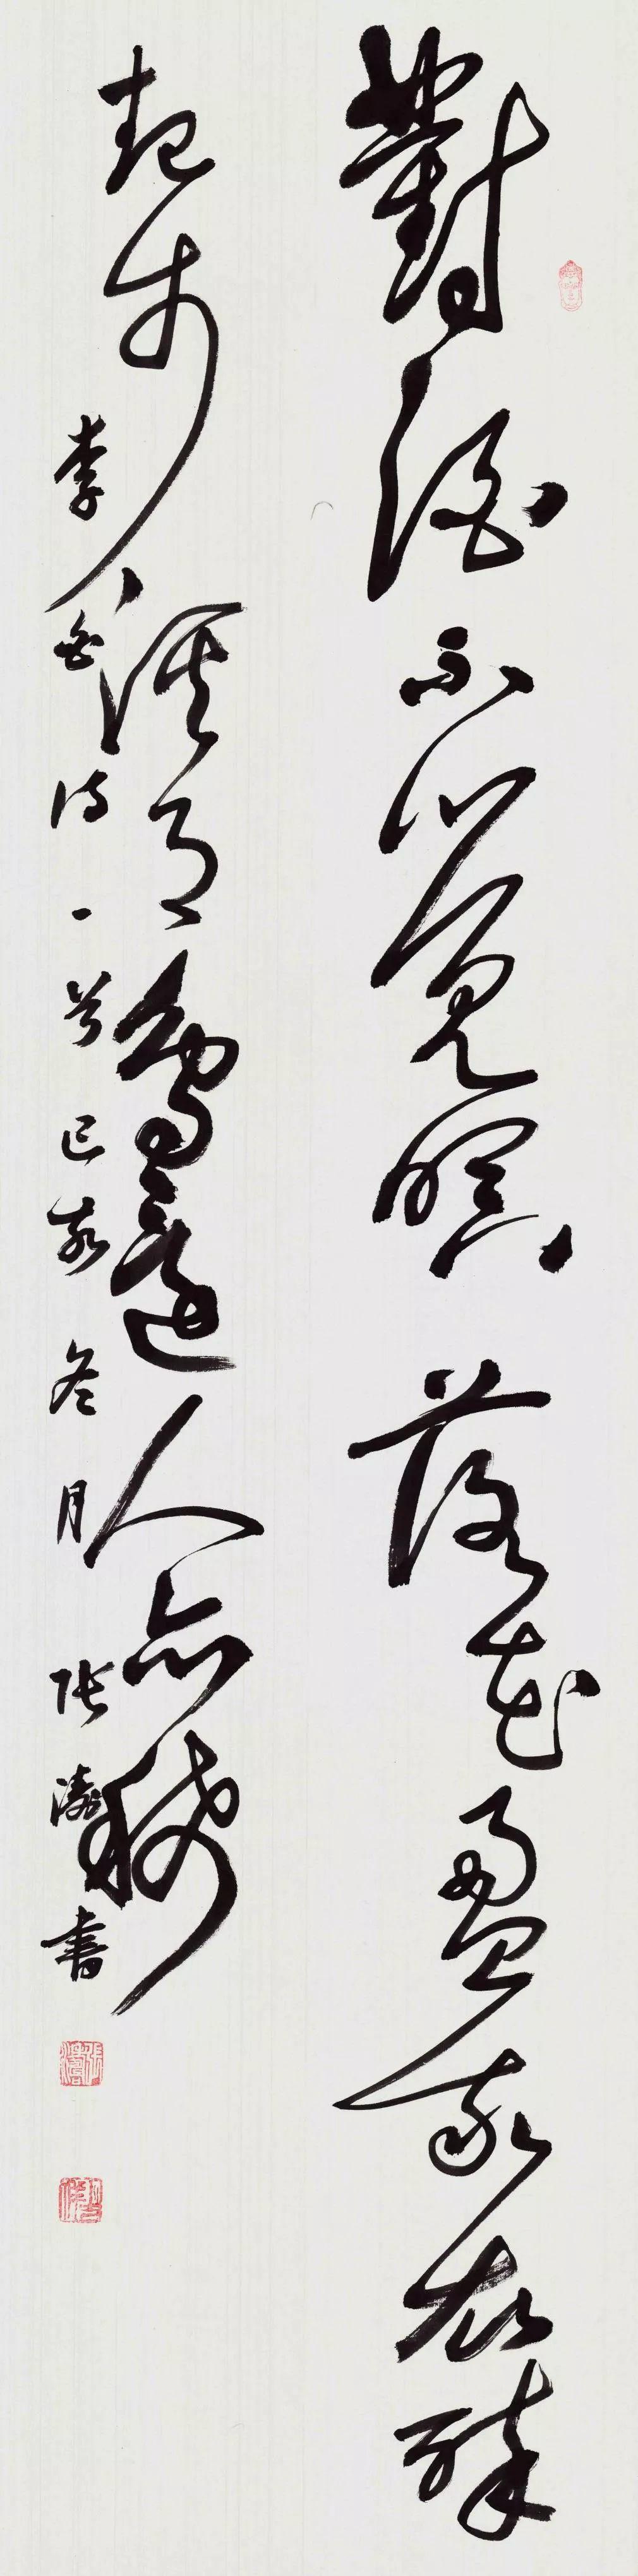 對酒不覺暝落花盈我衣醉
起步溪月鳥還人亦稀
李白詩一首己亥冬月張濤書